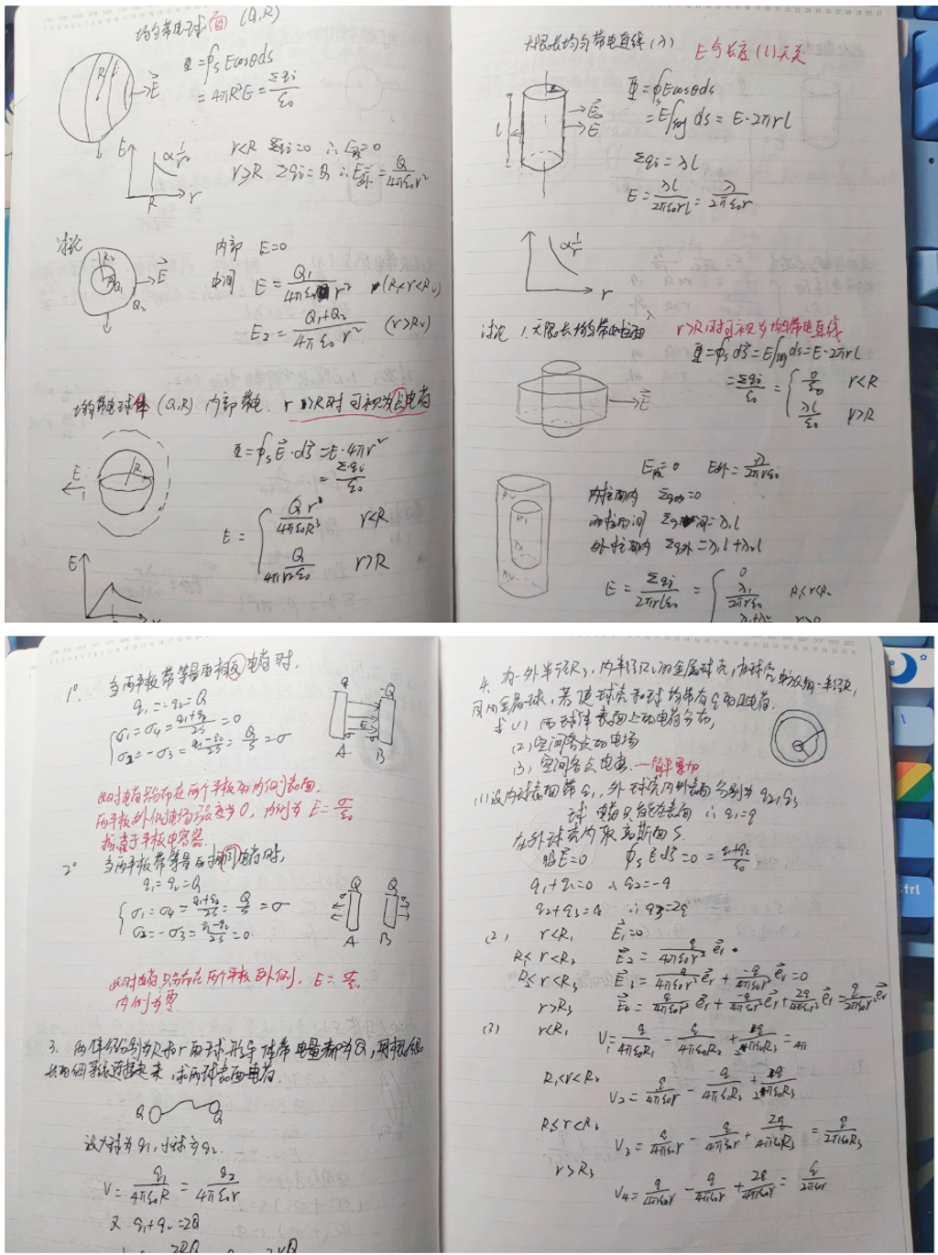 均匀带电球面 (Q,R)
Φ=∮s Ecosθds
=4πR²E=Σqi/ε0
R
r
E⃗
r<R Σqi=0 ∴E内=0
r≥R Σqi=Q ∴E外=Q/4πε0r²
E
∝1/r²
R
r
讨论
R2
Q1
Q2
E⃗
内部 E=0
中间 E=Q1/4πε0r² (R1<r<R2)
E2=Q1+Q2/4πε0r² (r>R2)
均匀带电球体 (Q,R) 内部带电. r>>R时可视为点电荷
E
R
Φ=∮s E⃗·ds⃗=E·4πr²
=Σqi/ε0
E={Qr/4πε0R³ r<R
Q/4πr²ε0 r>R
E
r
无限长均匀带电直线(λ)
E与长度(l)无关
l
E⃗
E⃗
Φ=∮Ecosθds
=E∫侧ds=E·2πrl
Σqi=λl
E=λl/2πε0rl=λ/2πε0r
∝1/r
r
讨论 1.无限长均匀带电柱面
r>R时可视为均匀带电直线
Φ=∮s ds⃗=E∫侧ds=E·2πrl
=Σqi/ε0={0/ε0 r<R
λl/ε0 r>R
E⃗
E内=0 E外=λ/2πrε0
R2
R1
内柱面内 Σq内=0
两柱面间 Σq间=λ1l
外柱面内 Σq外=λ1l+λ2l
E=Σqi/2πrlε0={0
λ1/2πrε0 R1<r<R2
λ1+λ2 r>R2
1° 当两平板带等量而相反电荷时.
q1=-q2=Q
{σ1=σ4=q1+q2/2S=0
σ2=-σ3=q1-q2/2S=Q/S=σ
E
A
B
此时电荷只分布在两个平板的内侧表面.
两平板外侧电场强度为0, 内侧为 E=σ/ε0
相当于平板电容器.
2° 当两平板带等量而相同电荷时,
q1=q2=Q
{σ1=σ4=q1+q2/2S=Q/S=σ
σ2=-σ3=q1-q2/2S=0
Q
Q
A
B
此时电荷只分布在两个平板外侧, E=σ/ε0
内侧为零
3. 两半径分别为R和r的球形导体带电量都为Q, 用根很长的细导线连接起来, 求两球表面电荷.
Q
Q
设大球为q1, 小球为q2.
V=q1/4πε0R=q2/4πε0r
又 q1+q2=2Q
4. 有一外半径R3, 内半径R2的金属球壳, 在球壳中放一半径R1
同心金属球, 若使球壳和球均带有q的正电荷.
求(1) 两球体表面上的电荷分布,
(2) 空间各点的电场
(3) 空间各点电势. —简单叠加
(1) 设内球表面带q1, 外球壳内外表面分别为q2,q3
球 电荷只能在表面 ∴q1=q
在外球壳内取高斯面S
E⃗=0 ∮s E⃗ds⃗=0=q1+q2/ε0
q1+q2=0 ∴q2=-q
q2+q3=q ∴q3=2q
(2) r<R1 E⃗1=0
R1<r<R2 E⃗2=q/4πε0r² e⃗r
R2<r<R3 E⃗3=q/4πε0r² e⃗r+-q/4πε0r² e⃗r=0
r>R3 E⃗4=q/4πε0r² e⃗r+-q/4πε0r² e⃗r+2q/4πε0r² e⃗r=q/2πε0r² e⃗r
(3) r<R1 V1=q/4πε0R1-q/4πε0R2+2q/4πε0R3
R1<r<R2 V2=q/4πε0r-q/4πε0R2+2q/4πε0R3
R2≤r<R3 V3=q/4πε0r-q/4πε0r+2q/4πε0R3=q/2πε0R3
r>R3
V4=q/4πε0r-q/4πε0r+2q/4πε0r=q/2πε0r
trl